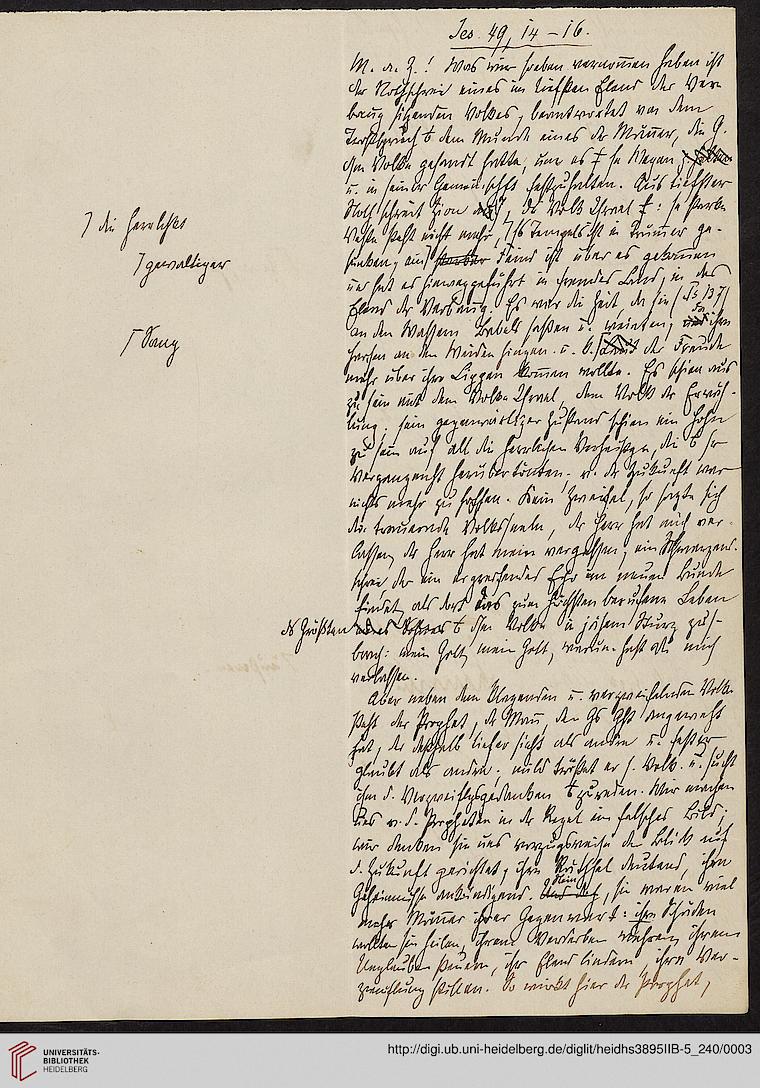 Jes. 49, 14-16.
M. a. Z.! Was wir soeben vernommen haben ist
der Nothschrei eines im tiefsten Elend der Ver-
bang sitzenden Volkes, beantwortet von dem
Trostspruch b dem Munde eines der Männer, die G.
dem Volke gesandt hatte, um es
u. in seiner Gemeinschaft festzuhalten. Aus tiefster
Noth schreit Zion, das Volk Israel
Veste steht nicht mehr, Tempel ist in Trümmer ge-
sunken, ein Feind ist über es gekommen
u. hat es hinweggeführt in fremdes Land, in das
Elend der Verbang. Es war die Zeit, da sie (Ps 137)
an den Wassern Babels saßen u. weinten, ihre
Harfen an den Weiden hingen u. der Freude
mehr über ihre Lippen kommen wollte. Es schien aus
zu sein mit dem Volke Israel, dem Volk der Erwäh-
lung; sein gegenwärtiger Zustand schien ein Hohn
zu sein auf all die herrlichen Verheißgen, die
Vergangenht herübertönten, u. der Zukunft war
nichts mehr zu hoffen. Kein Zweifel, so sagte sich
die trauernde Volksseele, der Herr hat mich ver-
lassen, der Herr hat mein vergessen, ein Schmerzens-
schrei der ein ergreifendes Echo im neuen Bunde
findet, als das zum höchsten berufene Leben
ds Größten b dem Volke in jähem Sturz zus-
brach: mein Gott, mein Gott, warum hast du mich
verlassen.
Aber neben dem klagenden u. verzweifelnden Volke
steht der Prophet, der Mann, den Gs Gst angeweht
hat, der deßhalb tiefer sieht als andre u. fester
glaubt als andre; mild tröstet er s. Volk u. sucht
ihm d. Verzweiflgsgedanken zureden. Wir machen
uns v. d. Propheten in der Regel ein falsches Bild;
wir denken sie uns vorzugsweise den Blick auf
d. Zukunft gerichtet, ihre Räthsel deutend, ihre
Geheimnisse ankündigend. Nein, sie waren viel
mehr Männer ihrer Gegenwart: ihre Schäden
wollten sie heilen, ihrem Verderben wehren, ihrem
Unglauben steuern, ihr Elend lindern, ihre Ver-
zweiflung stillen. So wirkt hier der Prophet,
die herrlichste
gewaltiger
Sang
UNIVERSITÄTS-
BIBLIOTHEK
HEIDELBERG
http://digi.ub.uni-heidelberg.de/diglit/heidhs3895IIB-5_240/0003